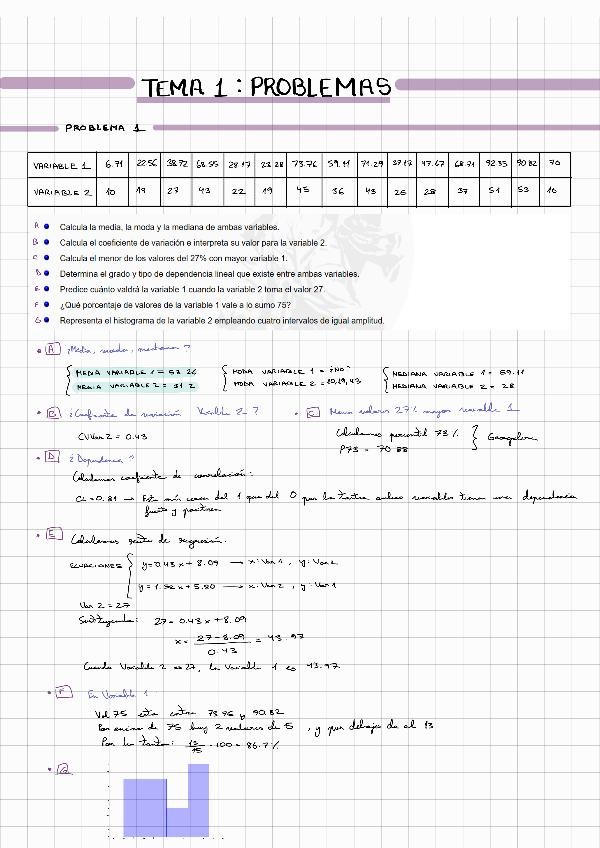 TEMA 1 : PROBLEMAS
PROBLEMA 1
VARIABLE 1 6.71 22.56 38.72 68.55 28.17 23.28 73.76 59.11 71.29 37.17 47.67 68.71 92.35 90.82 70
VARIABLE 2 10 19 27 43 22 19 45 36 43 26 28 37 51 53 10
A Calcula la media, la moda y la mediana de ambas variables.
B Calcula el coeficiente de variación e interpreta su valor para la variable 2.
C Calcula el menor de los valores del 27% con mayor variable 1.
D Determina el grado y tipo de dependencia lineal que existe entre ambas variables.
E Predice cuánto valdrá la variable 1 cuando la variable 2 toma el valor 27.
F ¿Qué porcentaje de valores de la variable 1 vale a lo sumo 75?
G Representa el histograma de la variable 2 empleando cuatro intervalos de igual amplitud.
A ¿Media, moda, mediana?
MEDIA VARIABLE 1 = 53.26 MODA VARIABLE 1 = ¿NO? MEDIANA VARIABLE 1 = 59.11
MEDIA VARIABLE 2 = 31.2 MODA VARIABLE 2 = 10,19,43 MEDIANA VARIABLE 2 = 28
B ¿Coeficiente de variación Variable 2? C Menor valores 27% mayor variable 1
CVVar2 = 0.43 Calculamos percentil 73% Geogebra
P73 = 70.88
D ¿Dependencia?
Calculamos coeficiente de correlación:
CL = 0.81 → Está más cerca del 1 que del 0 por lo tanto ambas variables tienen una dependencia
fuerte y positiva
E Calculamos recta de regresión.
ECUACIONES y = 0.43x + 8.09 → x: Var 1, y: Var 2
y = 1.52x + 5.80 → x: Var 2, y: Var 1
Var 2 = 27
Sustituyendo: 27 = 0.43x + 8.09
x = 27 - 8.09 / 0.43 = 43.97
Cuando Variable 2 es 27, la Variable 1 es 43.97
F En Variable 1
Val 75 esta entre 73.76 y 90.82
Por encima de 75 hay 2 valores de 15, y por debajo de al 13
Por lo tanto: 13/15 · 100 = 86.7%
G